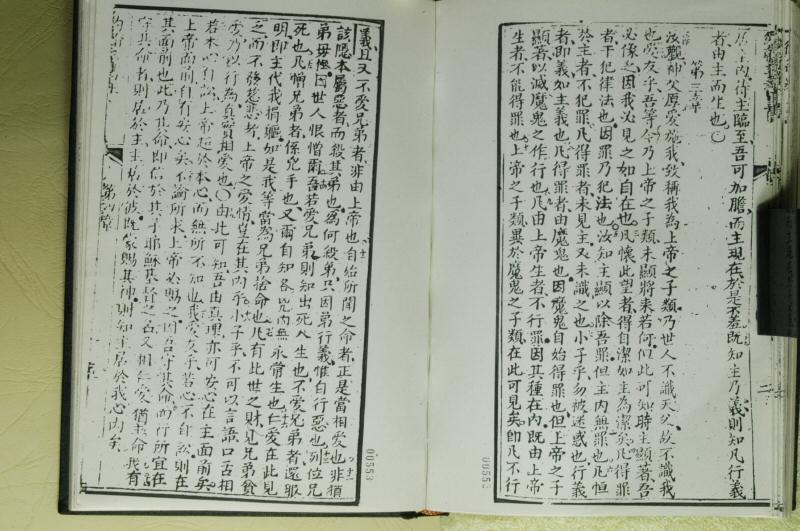 居主內待主臨至吾可加膽而主現在於是不羞既知主乃義則知凡行義
者由主而生也
第三章
汝觀神父厚愛施我致稱我為上帝之子類乃世人不識天父故不識我
也愛友乎吾等今乃上帝之子類未顯將来若何但此可知時主顯著吾
必像之因我必見之如自在也凡懷此望者得自潔如主為潔矣凡得罪
者干犯律法也因罪乃犯法也汝知主顯以除吾罪但主內無罪也凡恒
於主者不犯罪凡得罪者未見主又未識之也小子乎勿被迷惑也行義
者即義如主義也凡得罪者由魔鬼也因魔鬼自始得罪也但上帝之子
顯著以滅魔鬼之作行也凡由上帝生者不行罪因其種在內既由上帝
生者不能得罪也上帝之子類異於魔鬼之子類在此可見矣即凡不行
00553
義且又不愛兄弟者非由上帝也自始所聞之命者正是當相愛也非須
該隱本屬惡者而殺其弟也為何殺弟只因弟行義惟自行惡也列位兄
弟毋怪因世人恨憎爾吾若愛兄弟則知出死入生也不愛兄弟者還服
死也凡憎兄弟者係兇手也又爾自知各兇內無永常生也仁愛在此見
明即主代我捐軀如是我等當為兄弟捨命也凡有此世之財見兄弟貧
乏而不發慈悲者上帝之愛情豈在其內乎小子乎不可以言語口舌相
愛乃以行為真實相愛也由此可知吾由真理亦可安心在主面前矣
若本心自訟上帝超於本心而無所不知也我愛友乎若心不自訟則在
上帝面前自有安心矣不論所求上帝必賜之因吾守其命而行所宜在
其面前也此乃其命即信於其子耶穌基督之名又相仁愛猶主命我有
守其命者則居於主主居於彼既蒙賜其神則知主居於我心內矣
第四章
00553